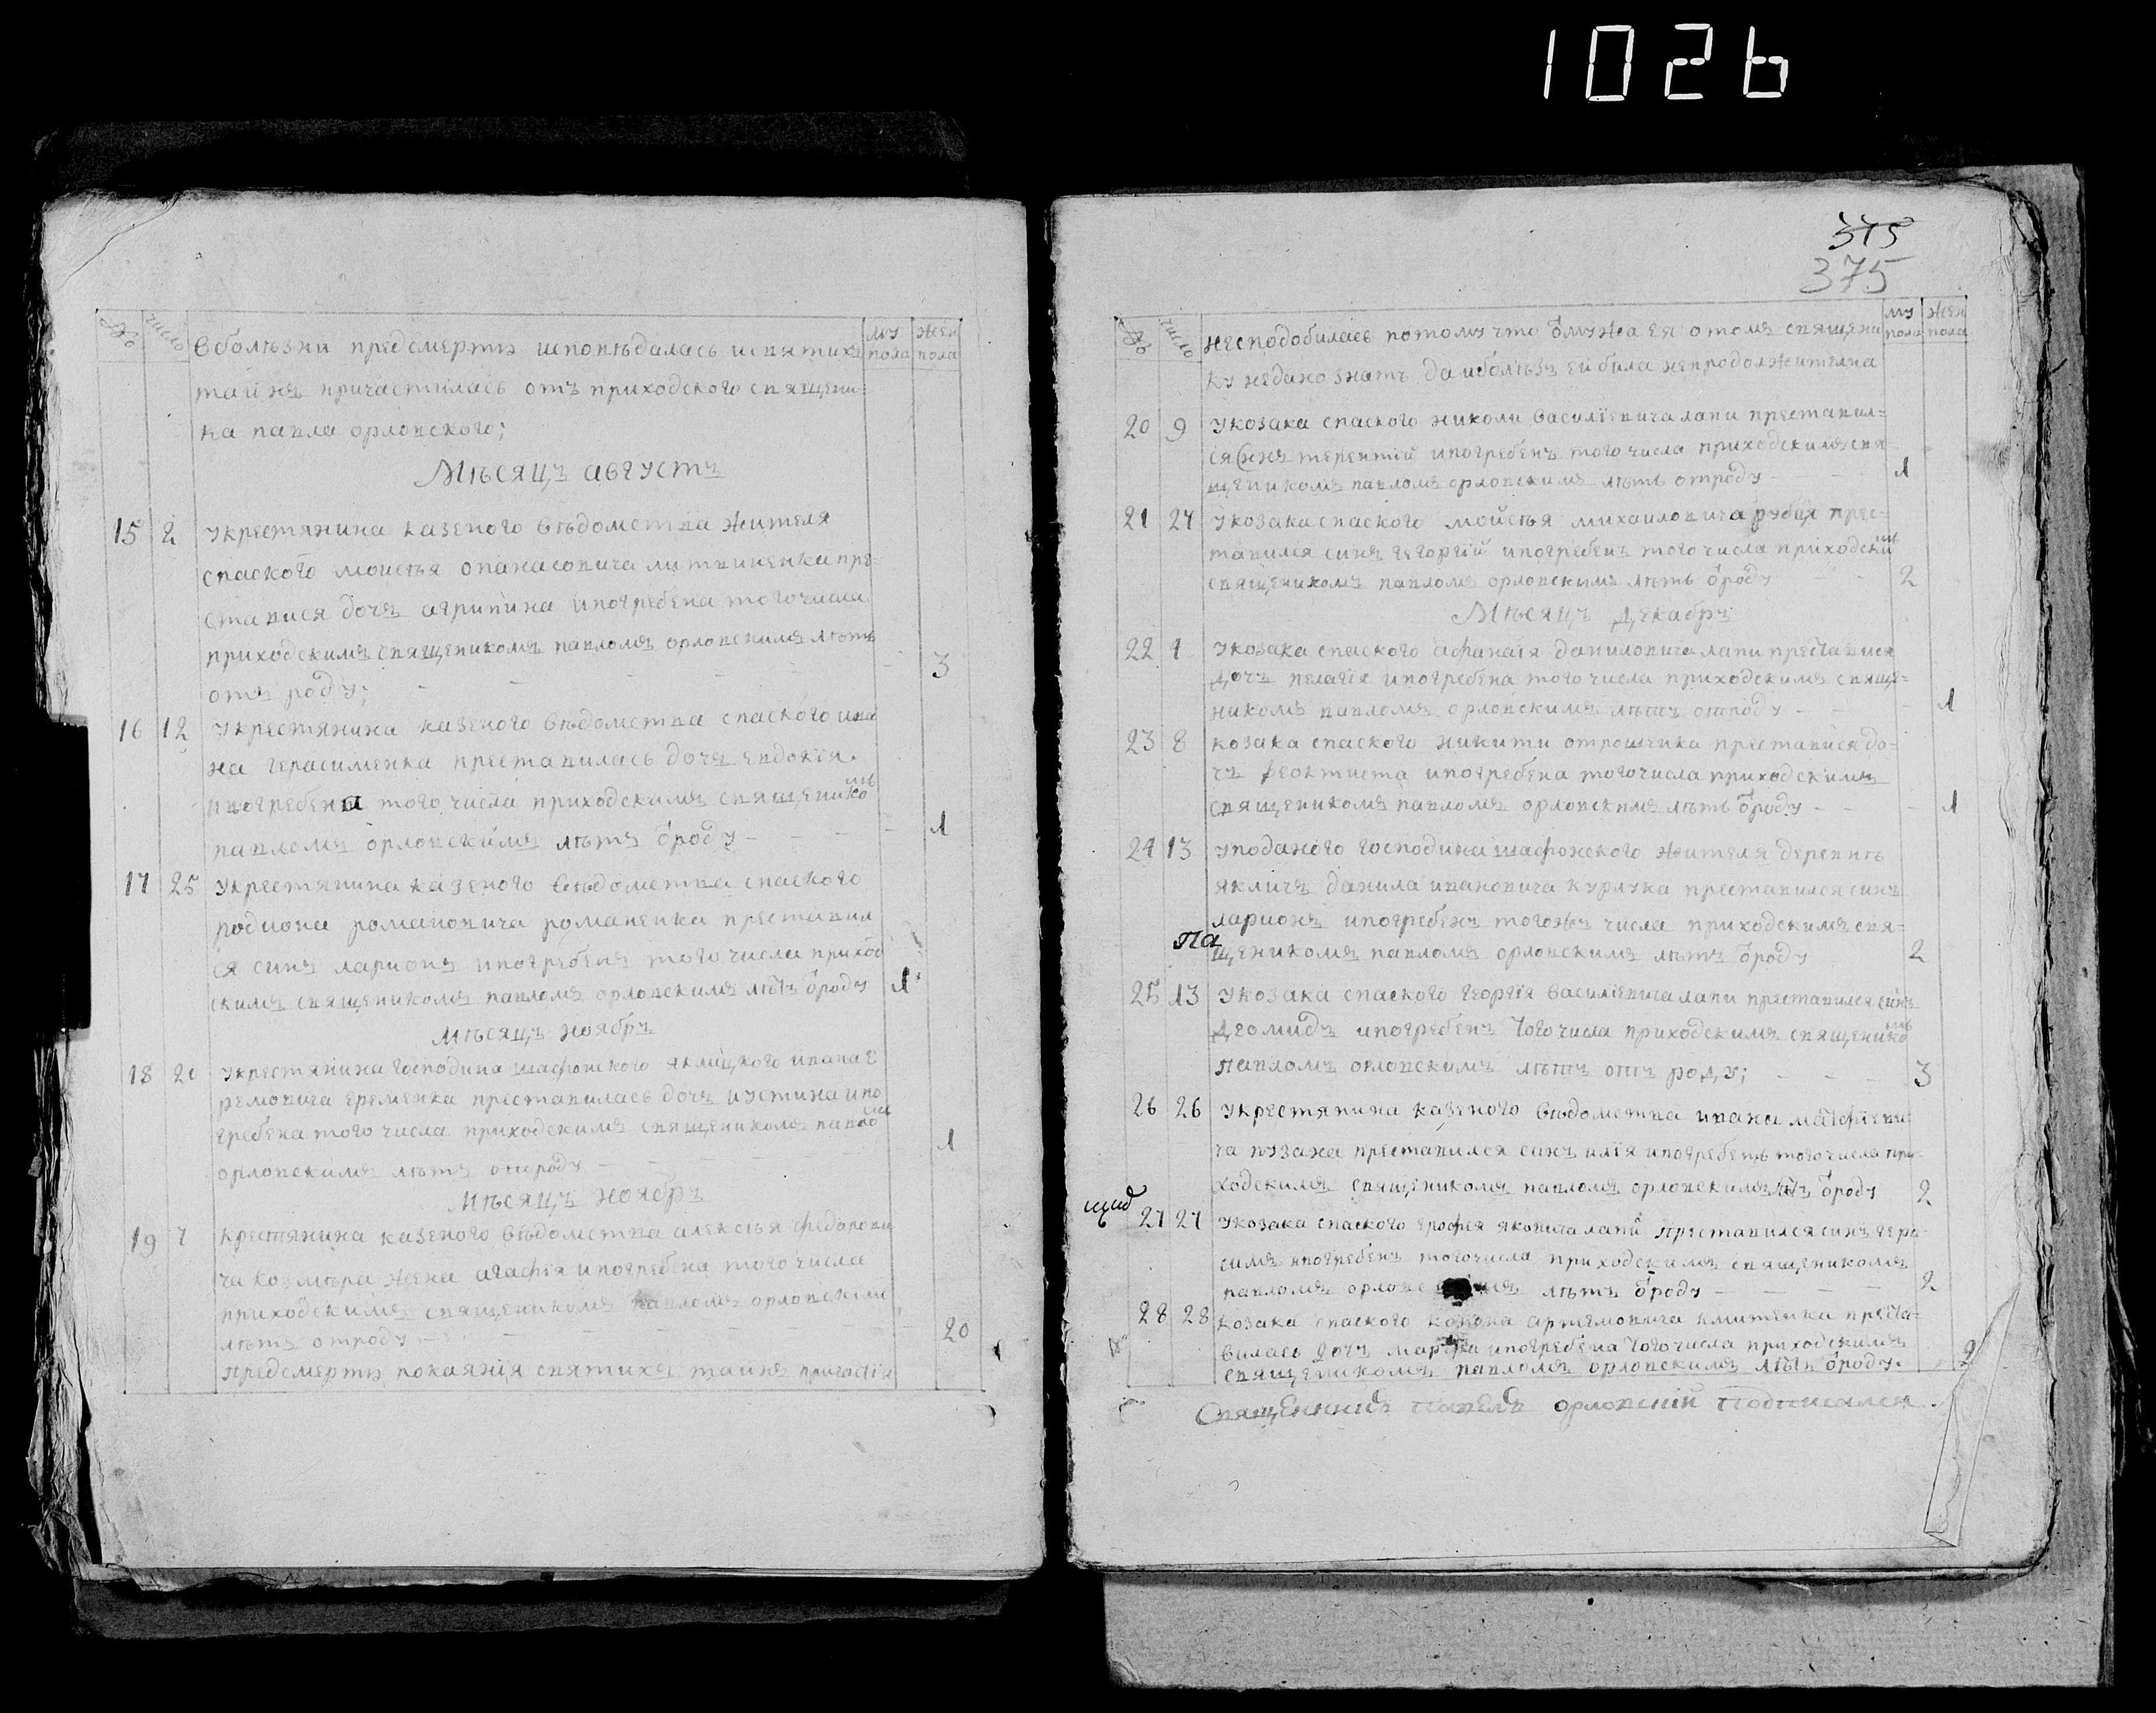 1026
№ число му пола жен пола
вболѣзни предсмертю исповѣдалась исвятихъ
тайнъ причастилась отъ приходского священи-
ка павла орловского;
Мѣсяцъ августъ
15 2 укрестянина казеного вѣдомства жителя
спаского моисѣя опанасовича литвиненка пре-
ставися дочъ агрипина ипогребена того числа
приходскимъ священикомъ павломъ орловскимъ лѣтъ
отъ роду; 3
16 12 укрестянина казеного вѣдомства спаского ива
на герасименка преставилась дочъ евдокія.
ипогребена того числа приходскимъ священикомъ
павломъ орловскимъ лѣтъ ѿроду 1
17 25 укрестянина казеного вѣдомства спаского
родиона романовича романенка преставил
ся синъ ларионъ ипогребенъ того числа приход
скимъ священикомъ павломъ орловскимъ лѣтъ ѿроду 1
мѣсяцъ ноябръ
18 20 укрестянина господина шафонского яклицкого ивана е
ремовича еременка преставилась дочъ иустина ипо
гребена того числа приходскимъ священикомъ павломъ
орловскимъ лѣтъ отроду 1
мѣсяцъ ноябръ
19 7 крестянина казеного вѣдомства алексѣя федорови
ча козмѣра жена агафія ипогребена того числа
приходскимъ священикомъ павломъ орловскимъ
лѣтъ отроду 20
предсмертю покаянія святихъ таинъ причастія
375
375
№ число му пола жен пола
несподобилась потому что ѿмужа ея отомъ священи
ку недано знать да иболѣзъ ей била непродолжителна
20 9 укозака спаского николи василіевича лапи преставил-
ся синъ терентій ипогребенъ того числа приходскимъ свя-
щеникомъ павломъ орловскимъ лѣтъ отроду 1
21 27 укозака спаского мойсѣя михаиловича рубця прес-
тавился синъ георгій ипогребенъ того числа приходскимъ
священикомъ павломъ орловскимъ лѣтъ ѿроду 2
Мѣсяцъ декабръ
22 1 укозака спаского афанасія даниловича лапи преставися
дочъ пелагія ипогребена того числа приходскимъ свяще-
никомъ павломъ орловскимъ лѣтъ отроду 1
23 8 козака спаского никити отрошенка преставися до-
чъ феоктиста ипогребена того числа приходскимъ
священикомъ павломъ орловскимъ лѣтъ ѿроду 1
24 13 уподаного господина шафонского жителя деревнѣ
якличъ данила ивановича курлука преставился синъ
ларионъ ипогребенъ тогожъ числа приходскимъ свя-
Па
щеникомъ павломъ орловскимъ лѣтъ ѿроду 2
25 13 укозака спаского георгія василіевича лапи преставился синъ
деомидъ ипогребенъ того числа приходскимъ священикомъ
павломъ орловскимъ лѣтъ отъ роду; 3
26 26 укрестянина казеного вѣдомства ивана матфѣеви
ча пузана преставился синъ илія ипогребенъ того числа при-
ходскимъ священикомъ павломъ орловскимъ лѣтъ ѿроду 2
27 27 укозака спаского ерофея яковича лапи преставился синъ гера
симъ ипогребенъ того числа приходскимъ священикомъ
павломъ орловскимъ лѣтъ ѿроду 2
28 28 козака спаского конона артемовича кмитенка преста-
вилась дочъ марфа ипогребена того числа приходскимъ
священикомъ павломъ орловскимъ лѣтъ ѿроду. 2
Священникъ павелъ орловскій подписался.